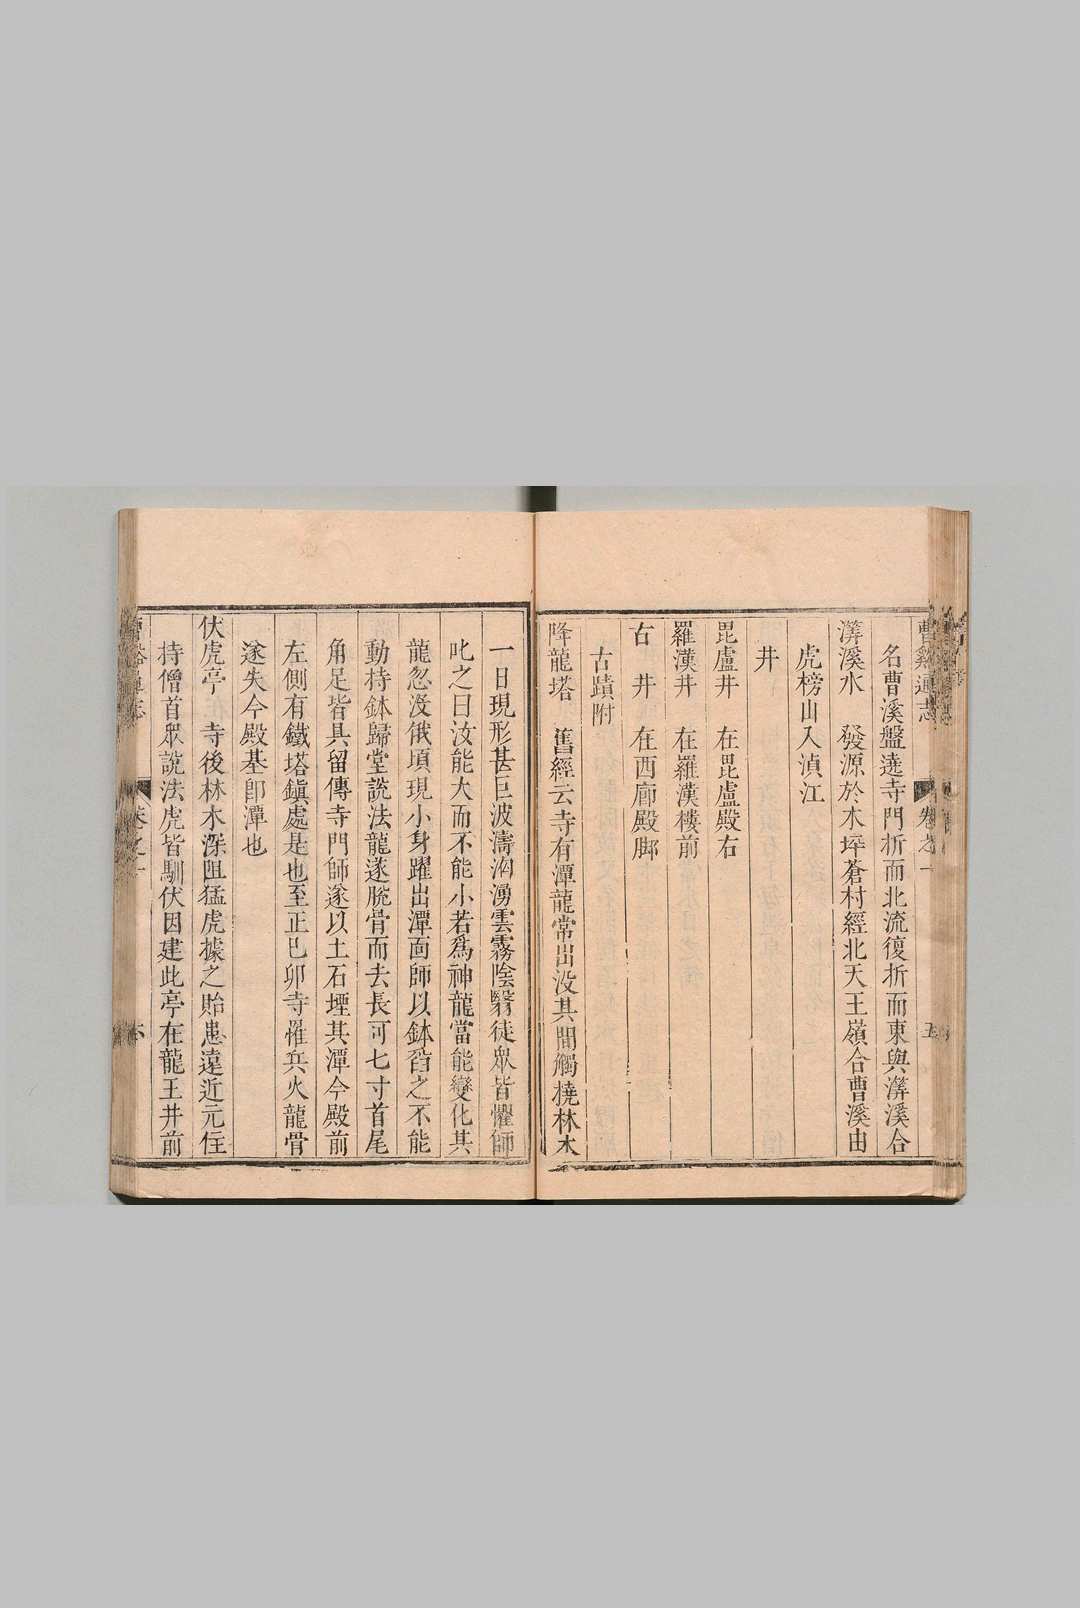 曹谿通志 卷之一 五
名曹溪盤遶寺門折而北流復折而東與澝溪合
澝溪水 發源於木坪蒼村經北天王嶺合曹溪由
虎榜山入湞江
井
毘盧井 在毘盧殿右
羅漢井 在羅漢樓前
古井 在西廊殿脚
古蹟附
降龍塔 舊經云寺有潭龍常出没其間觸橈林木
一日現形甚巨波濤洶湧雲霧陰翳徒眾皆懼師
叱之曰汝能大而不能小若爲神龍當能變化其
龍忽没俄頃現小身躍出潭面師以鉢舀之不能
動持鉢歸堂說法龍遂脫骨而去長可七寸首尾
角足皆具留傳寺門師遂以土石堙其潭今殿前
左側有鐵塔鎮處是也至正己卯寺罹兵火龍骨
遂失今殿基卽潭也
伏虎亭在 寺後林木深阻猛虎據之貽患遠近元住
持僧首眾說法虎皆馴伏因建此亭在龍王井前
曹谿通志 卷之一 六